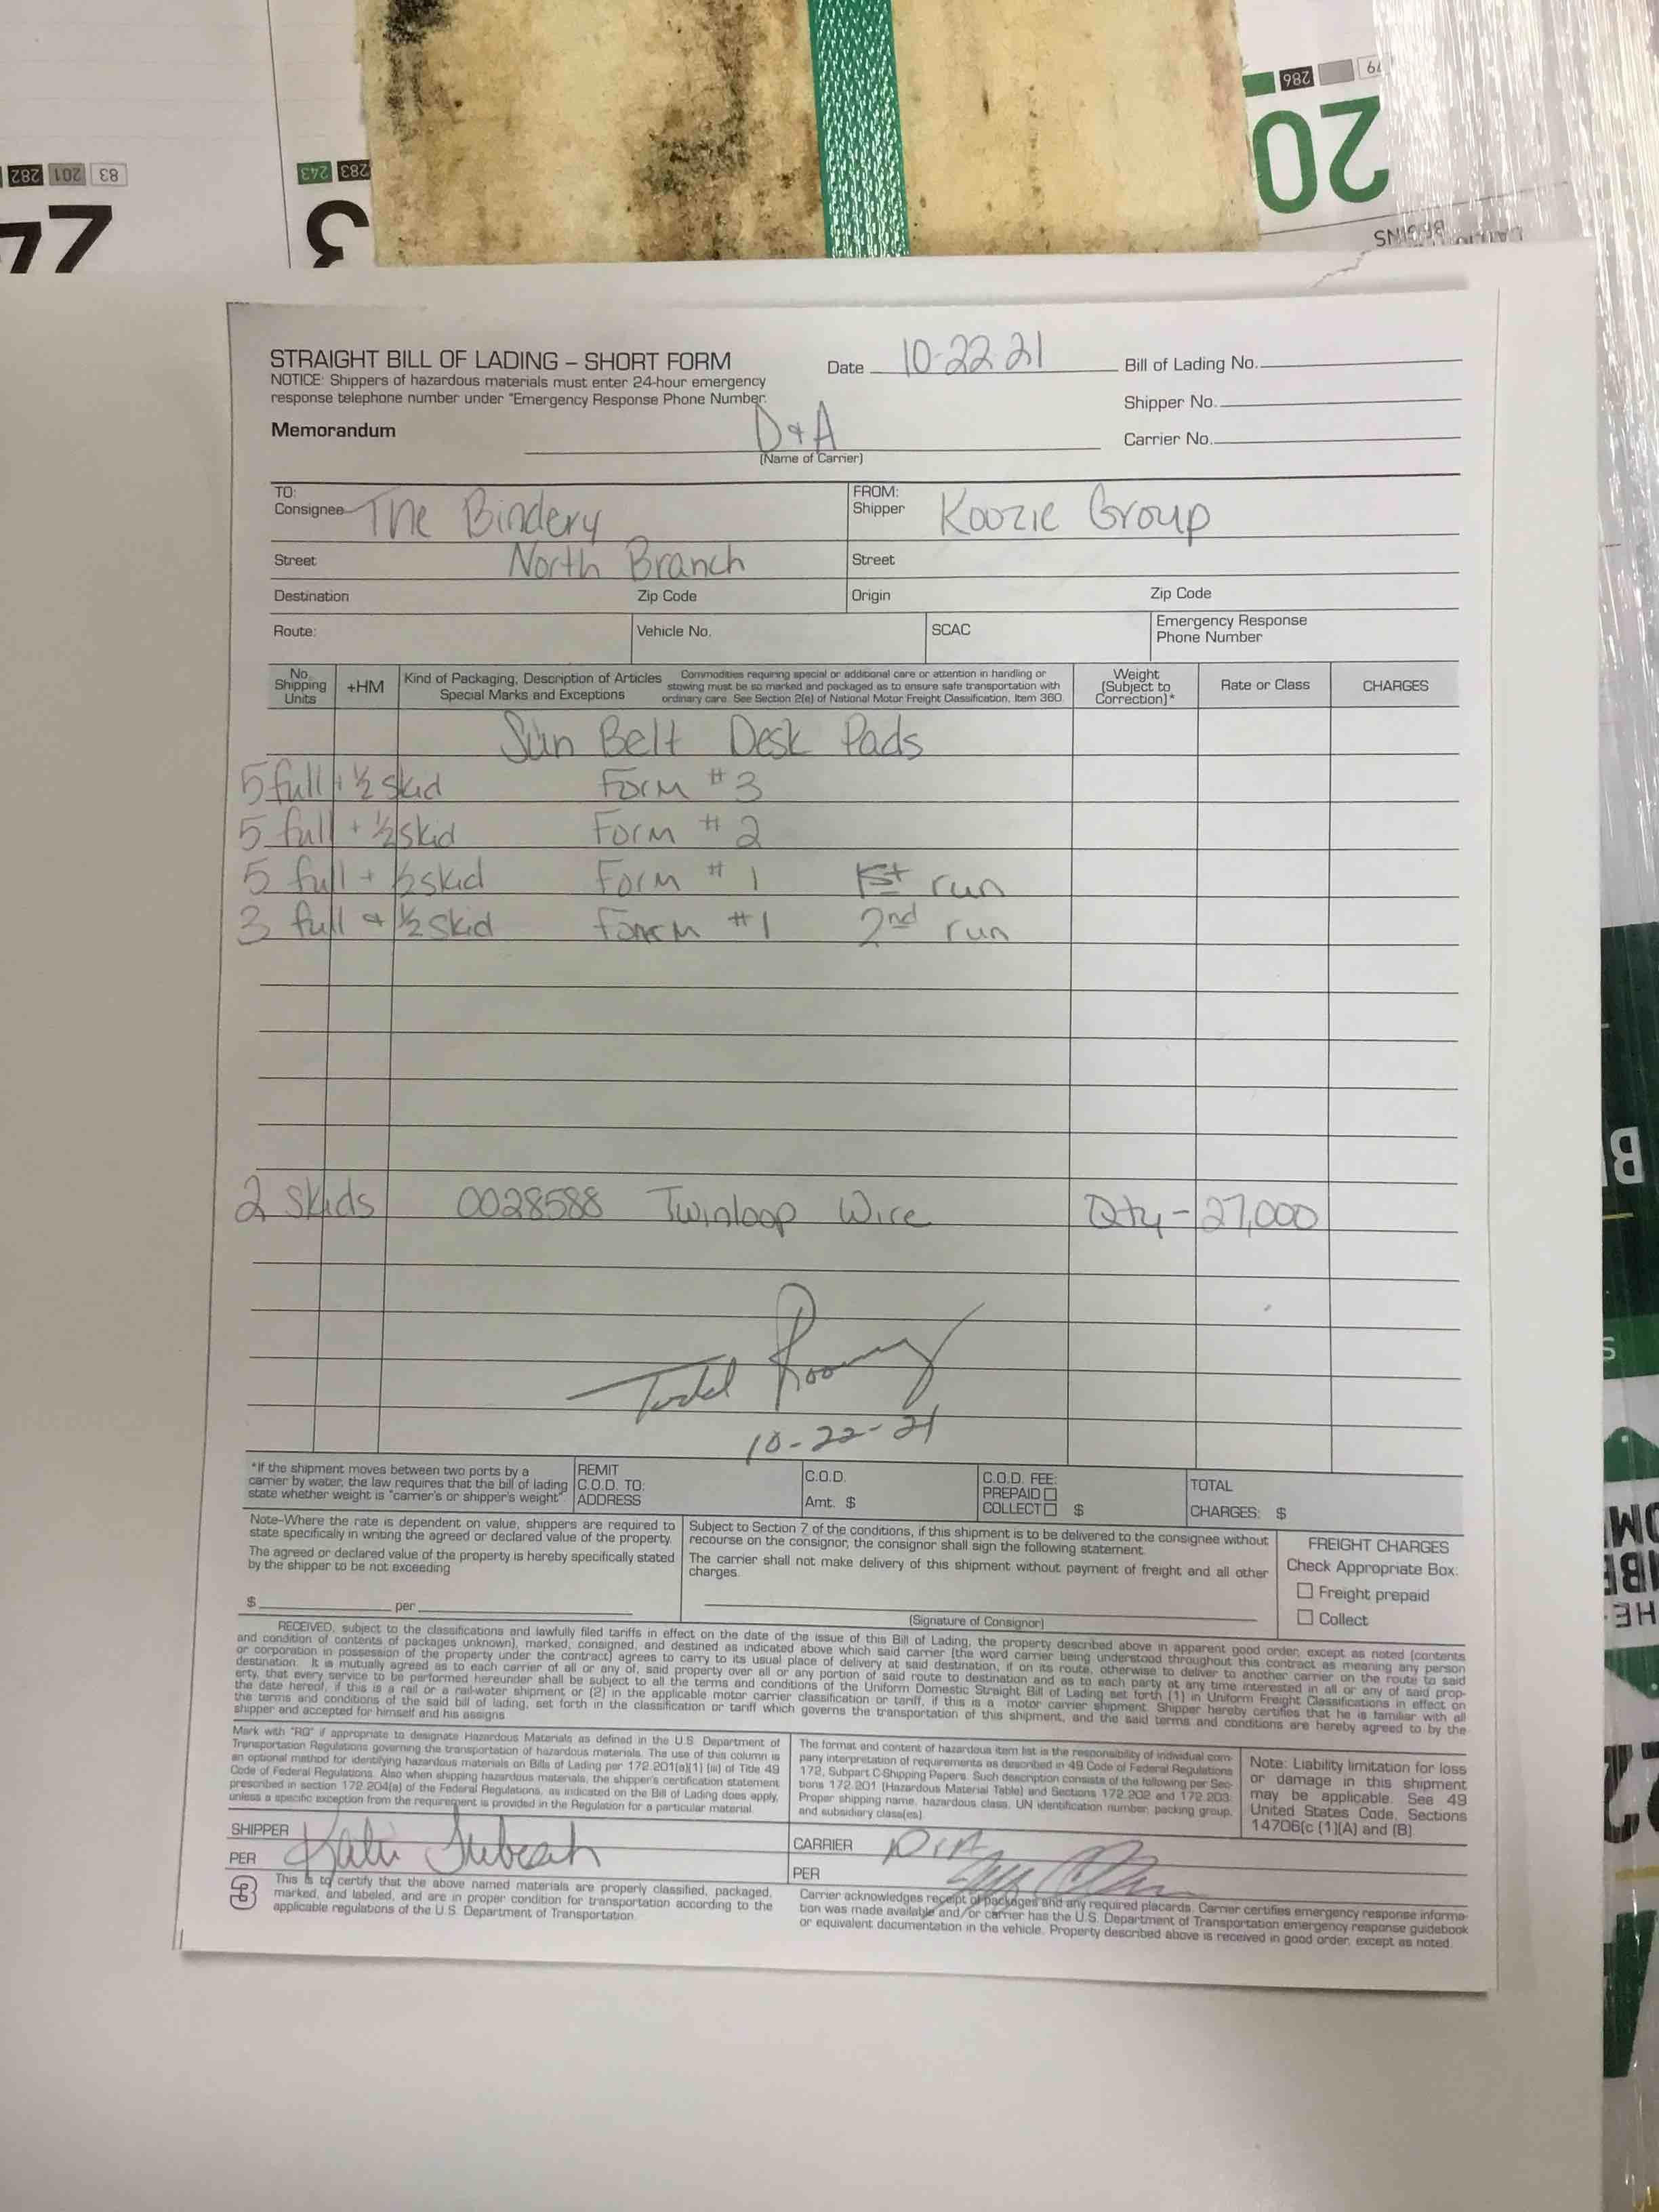 286
20
83 201 282
283 243
27
3
STRAIGHT BILL OF LADING – SHORT FORM
NOTICE: Shippers of hazardous materials must enter 24-hour emergency
response telephone number under "Emergency Response Phone Number.
Date 10-22 21
Bill of Lading No.
Shipper No.
Memorandum
D & A
Carrier No.
(Name of Carrier)
TO:
Consignee The Bindery
FROM:
Shipper Koozie Group
Street North Branch
Street
Destination Zip Code
Origin Zip Code
Route:
Vehicle No.
SCAC
Emergency Response
Phone Number
No.
Shipping
Units
+HM
Kind of Packaging, Description of Articles
Special Marks and Exceptions
Commodities requiring special or additional care or attention in handling or
stowing must be so marked and packaged as to ensure safe transportation with
ordinary care. See Section 2(e) of National Motor Freight Classification, Item 360
Weight
(Subject to
Correction)*
Rate or Class
CHARGES
Sun Belt Desk Pads
5 full + ½ skid Form # 3
5 full + ½ skid Form # 2
5 full + ½ skid Form # 1 1st run
3 full & ½ skid Form # 1 2nd run
2 skids 0028588 Twinloop Wire Qty - 27,000
Todd
10-22-21
*If the shipment moves between two ports by a
carrier by water, the law requires that the bill of lading
state whether weight is "carrier's or shipper's weight"
REMIT
C.O.D. TO:
ADDRESS
C.O.D.
Amt. $
C.O.D. FEE:
PREPAID
COLLECT $
TOTAL
CHARGES: $
Note–Where the rate is dependent on value, shippers are required to
state specifically in writing the agreed or declared value of the property.
The agreed or declared value of the property is hereby specifically stated
by the shipper to be not exceeding
$ per
Subject to Section 7 of the conditions, if this shipment is to be delivered to the consignee without
recourse on the consignor, the consignor shall sign the following statement.
The carrier shall not make delivery of this shipment without payment of freight and all other
charges.
(Signature of Consignor)
FREIGHT CHARGES
Check Appropriate Box:
Freight prepaid
Collect
RECEIVED, subject to the classifications and lawfully filed tariffs in effect on the date of the issue of this Bill of Lading, the property described above in apparent good order, except as noted (contents
and condition of contents of packages unknown), marked, consigned, and destined as indicated above which said carrier (the word carrier being understood throughout this contract as meaning any person
or corporation in possession of the property under the contract) agrees to carry to its usual place of delivery at said destination, if on its route, otherwise to deliver to another carrier on the route to said
destination. It is mutually agreed as to each carrier of all or any of, said property over all or any portion of said route to destination and as to each party at any time interested in all or any of said prop-
erty, that every service to be performed hereunder shall be subject to all the terms and conditions of the Uniform Domestic Straight Bill of Lading set forth (1) in Uniform Freight Classifications in effect on
the date hereof, if this is a rail or a rail-water shipment, or (2) in the applicable motor carrier classification or tariff, if this is a motor carrier shipment. Shipper hereby certifies that he is familiar with all
the terms and conditions of the said bill of lading, set forth in the classification or tariff which governs the transportation of this shipment, and the said terms and conditions are hereby agreed to by the
shipper and accepted for himself and his assigns
Mark with "RQ" if appropriate to designate Hazardous Materials as defined in the U.S. Department of
Transportation Regulations governing the transportation of hazardous materials. The use of this column is
an optional method for identifying hazardous materials on Bills of Lading per 172.201(a)(1) (iii) of Title 49
Code of Federal Regulations. Also when shipping hazardous materials, the shipper's certification statement
prescribed in section 172.204(a) of the Federal Regulations, as indicated on the Bill of Lading does apply,
unless a specific exception from the requirement is provided in the Regulation for a particular material.
The format and content of hazardous item list is the responsibility of individual com-
pany interpretation of requirements as described in 49 Code of Federal Regulations
172, Subpart C-Shipping Papers. Such description consists of the following per Sec-
tions 172.201 (Hazardous Material Table) and Sections 172.202 and 172.203:
Proper shipping name, hazardous class, UN identification number, packing group,
and subsidiary class(es)
Note: Liability limitation for loss
or damage in this shipment
may be applicable. See 49
United States Code, Sections
14706(c (1)(A) and (B)
SHIPPER
PER Kati
CARRIER D&A
PER
3
This is to certify that the above named materials are properly classified, packaged,
marked, and labeled, and are in proper condition for transportation according to the
applicable regulations of the U.S. Department of Transportation.
Carrier acknowledges receipt of packages and any required placards. Carrier certifies emergency response informa-
tion was made available and/or carrier has the U.S. Department of Transportation emergency response guidebook
or equivalent documentation in the vehicle. Property described above is received in good order, except as noted.